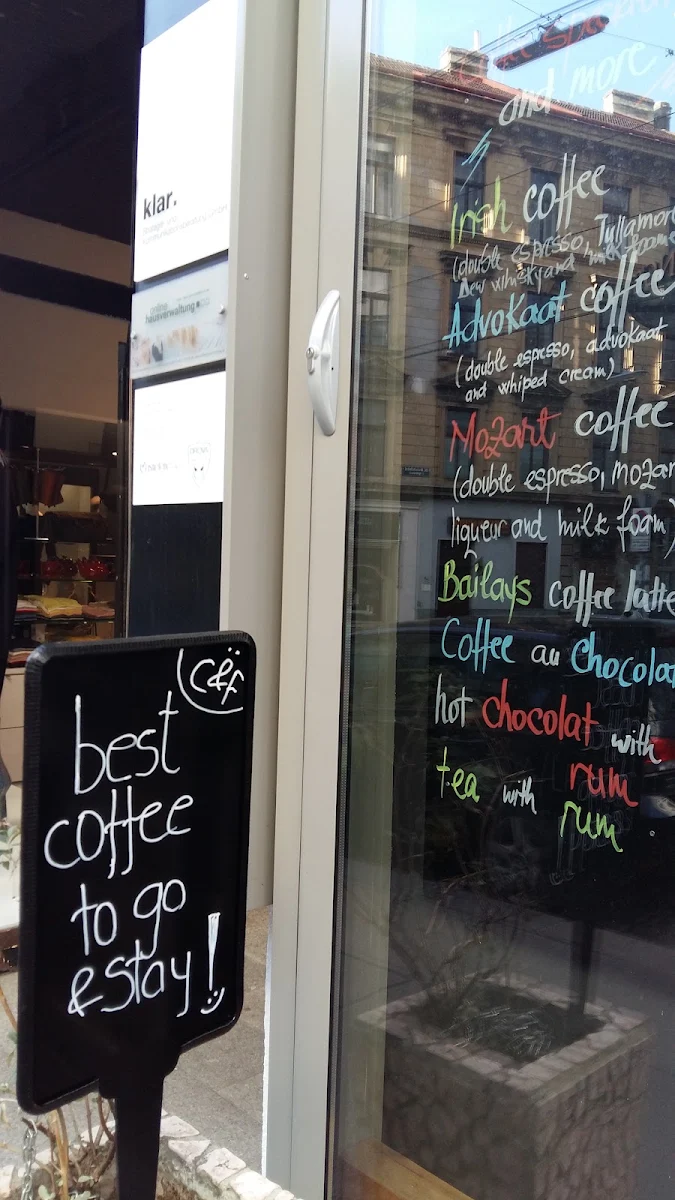 klar.
online
hausverwaltung
cëf
best
coffee
to go
& stay!
and more
Irish coffee
(double espresso, Tullamore
Dew whisky and milk foam
Advokaat coffee
(double espresso, advokaat
and whiped cream)
Mozart coffee
(double espresso, mozar
liqueur and milk foam)
Bailays coffee latte
Coffee au chocolat
hot chocolat with
rum
tea with rum